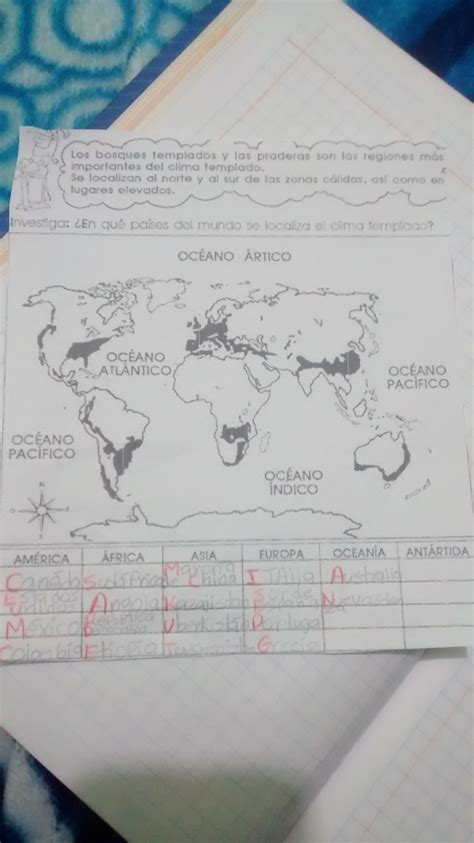 Los bosques templados y las praderas son las regiones más
importantes del clima templado.
Se localizan al norte y al sur de las zonas cálidas, así como en
lugares elevados.
Investiga: ¿En qué países del mundo se localiza el clima templado?
OCÉANO ÁRTICO
OCÉANO
ATLÁNTICO
OCÉANO
PACÍFICO
OCÉANO
PACÍFICO
OCÉANO
ÍNDICO
AMÉRICA ÁFRICA ASIA EUROPA OCEANÍA ANTÁRTIDA
Canadá Sudáfrica Mayoria China ITAlia Australia
Estados Unidos Angola
México
Colombia Etiopia Grecia